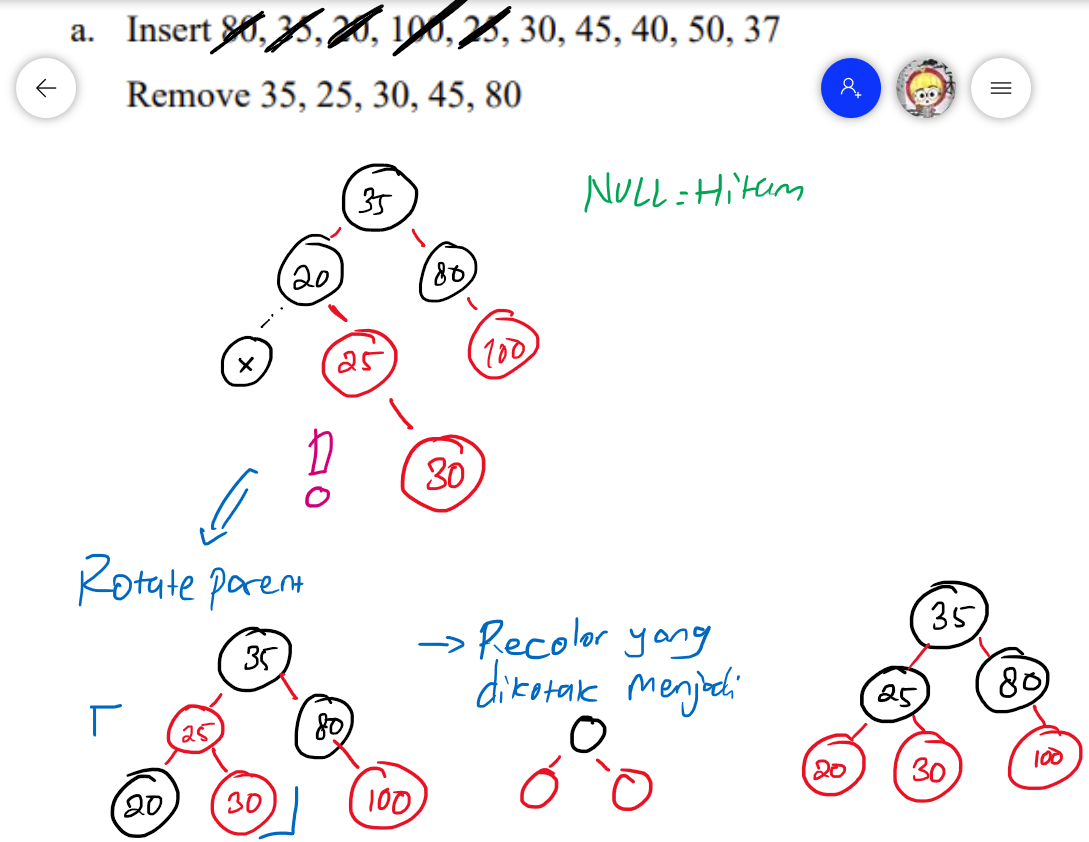 a. Insert 80, 35, 20, 100, 25, 30, 45, 40, 50, 37
Remove 35, 25, 30, 45, 80
NULL = Hitam
35
20 80
x 25 100
30
!
Rotate parent
→ Recolor yang
dikotak menjadi
35
25 80
20 30 100
35
25 80
20 30 100